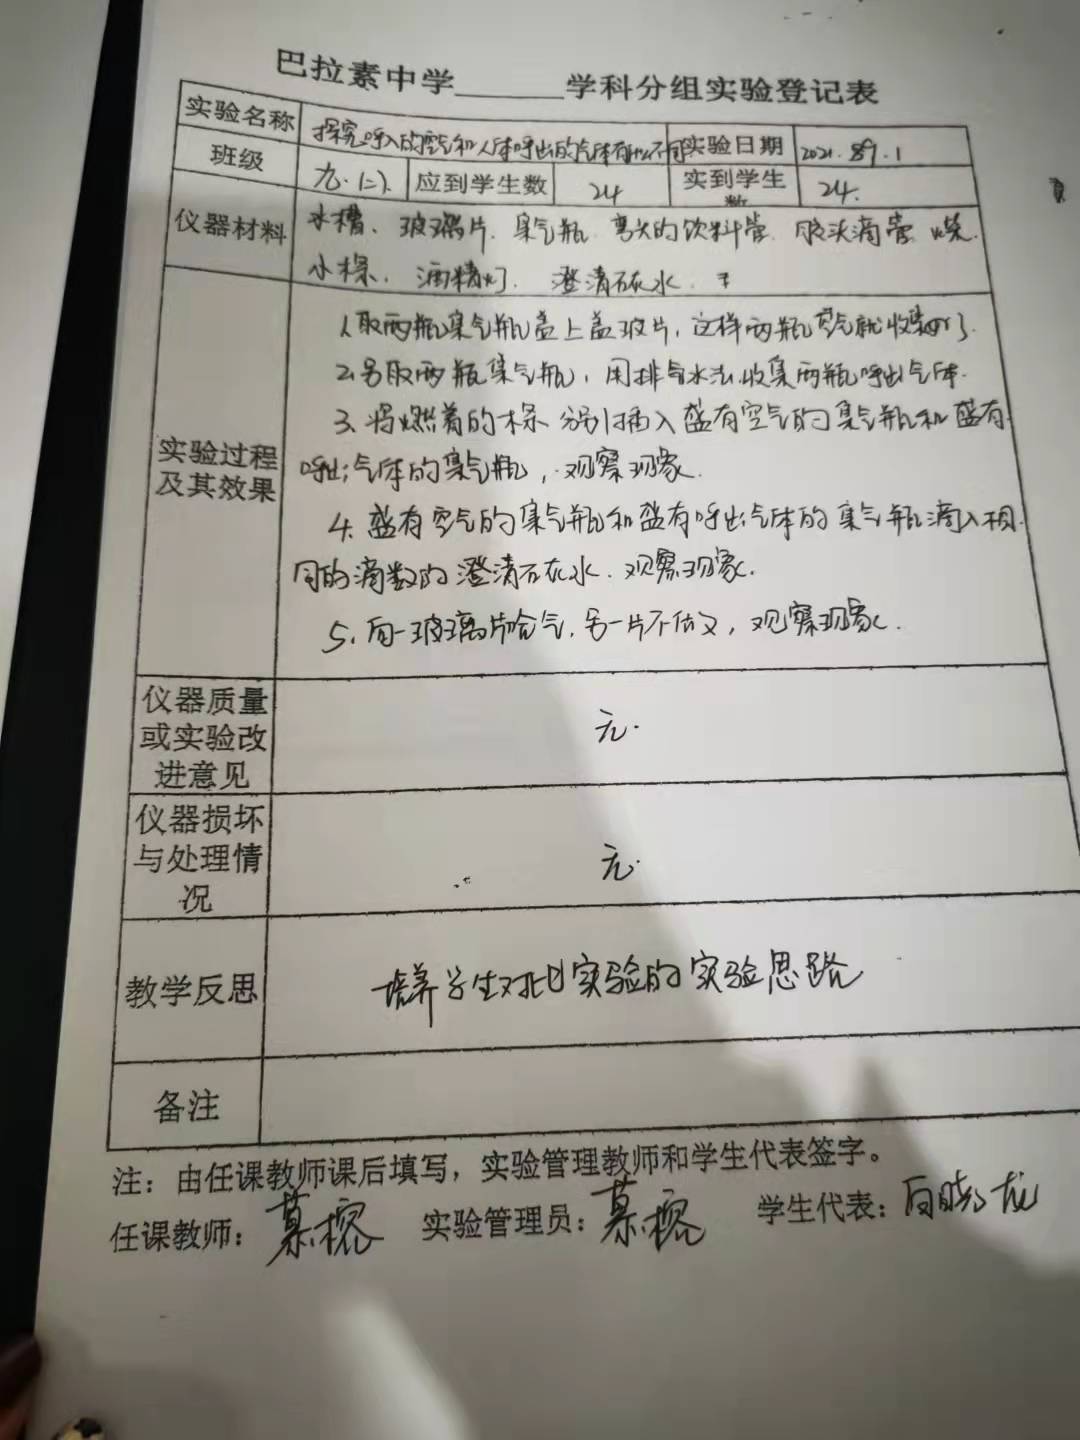 巴拉素中学______学科分组实验登记表
实验名称 探究吸入的空气和人体呼出的气体有什么不同 实验日期 2021.9.1
班级 九.(二). 应到学生数 24 实到学生数 24.
仪器材料 水槽、玻璃片、集气瓶、弯头的饮料管、胶头滴管
小木条、酒精灯、澄清石灰水、
实验过程及其效果
1、取两瓶集气瓶盖上盖玻片,这样两瓶空气就收集好了.
2、另取两瓶集气瓶,用排水法收集两瓶呼出气体.
3、将燃着的木条分别插入盛有空气的集气瓶和盛有
呼出气体的集气瓶,观察现象.
4、盛有空气的集气瓶和盛有呼出气体的集气瓶滴入相
同的滴数的澄清石灰水.观察现象.
5、向一玻璃片哈气,另一片不做,观察现象.
仪器质量或实验改进意见 无.
仪器损坏与处理情况 无.
教学反思 培养学生对比实验的实验思路
备注
注:由任课教师课后填写,实验管理教师和学生代表签字。
任课教师: 实验管理员: 学生代表: